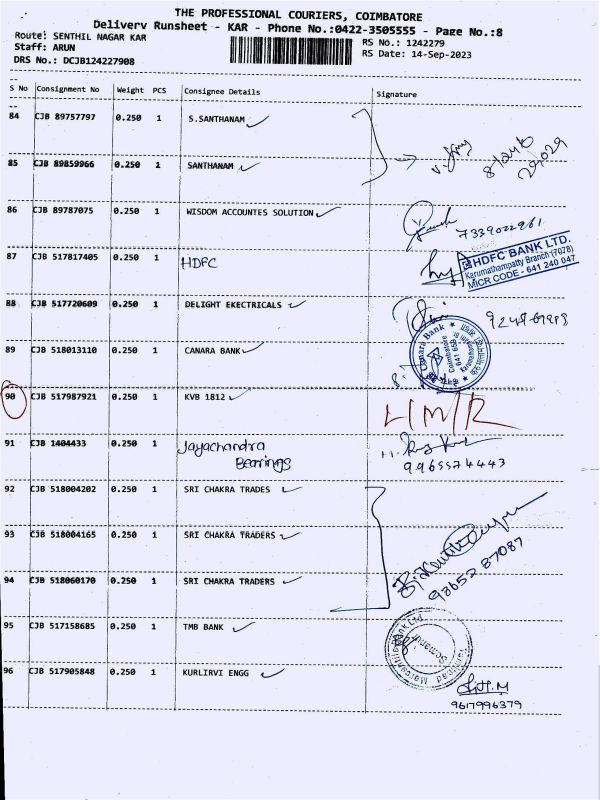 THE PROFESSIONAL COURIERS, COIMBATORE
Delivery Runsheet - KAR - Phone No.:0422-3505555 - Page No.:8
Route: SENTHIL NAGAR KAR
RS No.: 1242279
Staff: ARUN
RS Date: 14-Sep-2023
DRS No.: DCJB124227908
S No Consignment No Weight PCS Consignee Details Signature
84 CJB 89757797 0.250 1 S.SANTHANAM
85 CJB 89859966 0.250 1 SANTHANAM
86 CJB 89787075 0.250 1 WISDOM ACCOUNTES SOLUTION
7339022961
87 CJB 517817405 0.250 1 HDFC
HDFC BANK LTD.
Karumathampatty Branch (7078)
MICR CODE - 641 240 047
88 CJB 517720609 0.250 1 DELIGHT EKECTRICALS
89 CJB 518013110 0.250 1 CANARA BANK
Canara Bank
90 CJB 517987921 0.250 1 KVB 1812
91 CJB 1404433 0.250 1 Jayachandra
Bearings
9965574443
92 CJB 518004202 0.250 1 SRI CHAKRA TRADES
93 CJB 518004165 0.250 1 SRI CHAKRA TRADERS
98652 87087
94 CJB 518060170 0.250 1 SRI CHAKRA TRADERS
95 CJB 517158685 0.250 1 TMB BANK
Tamilnad Mercantile Bank Ltd
Somanur
96 CJB 517905848 0.250 1 KURLIRVI ENGG
9617996379